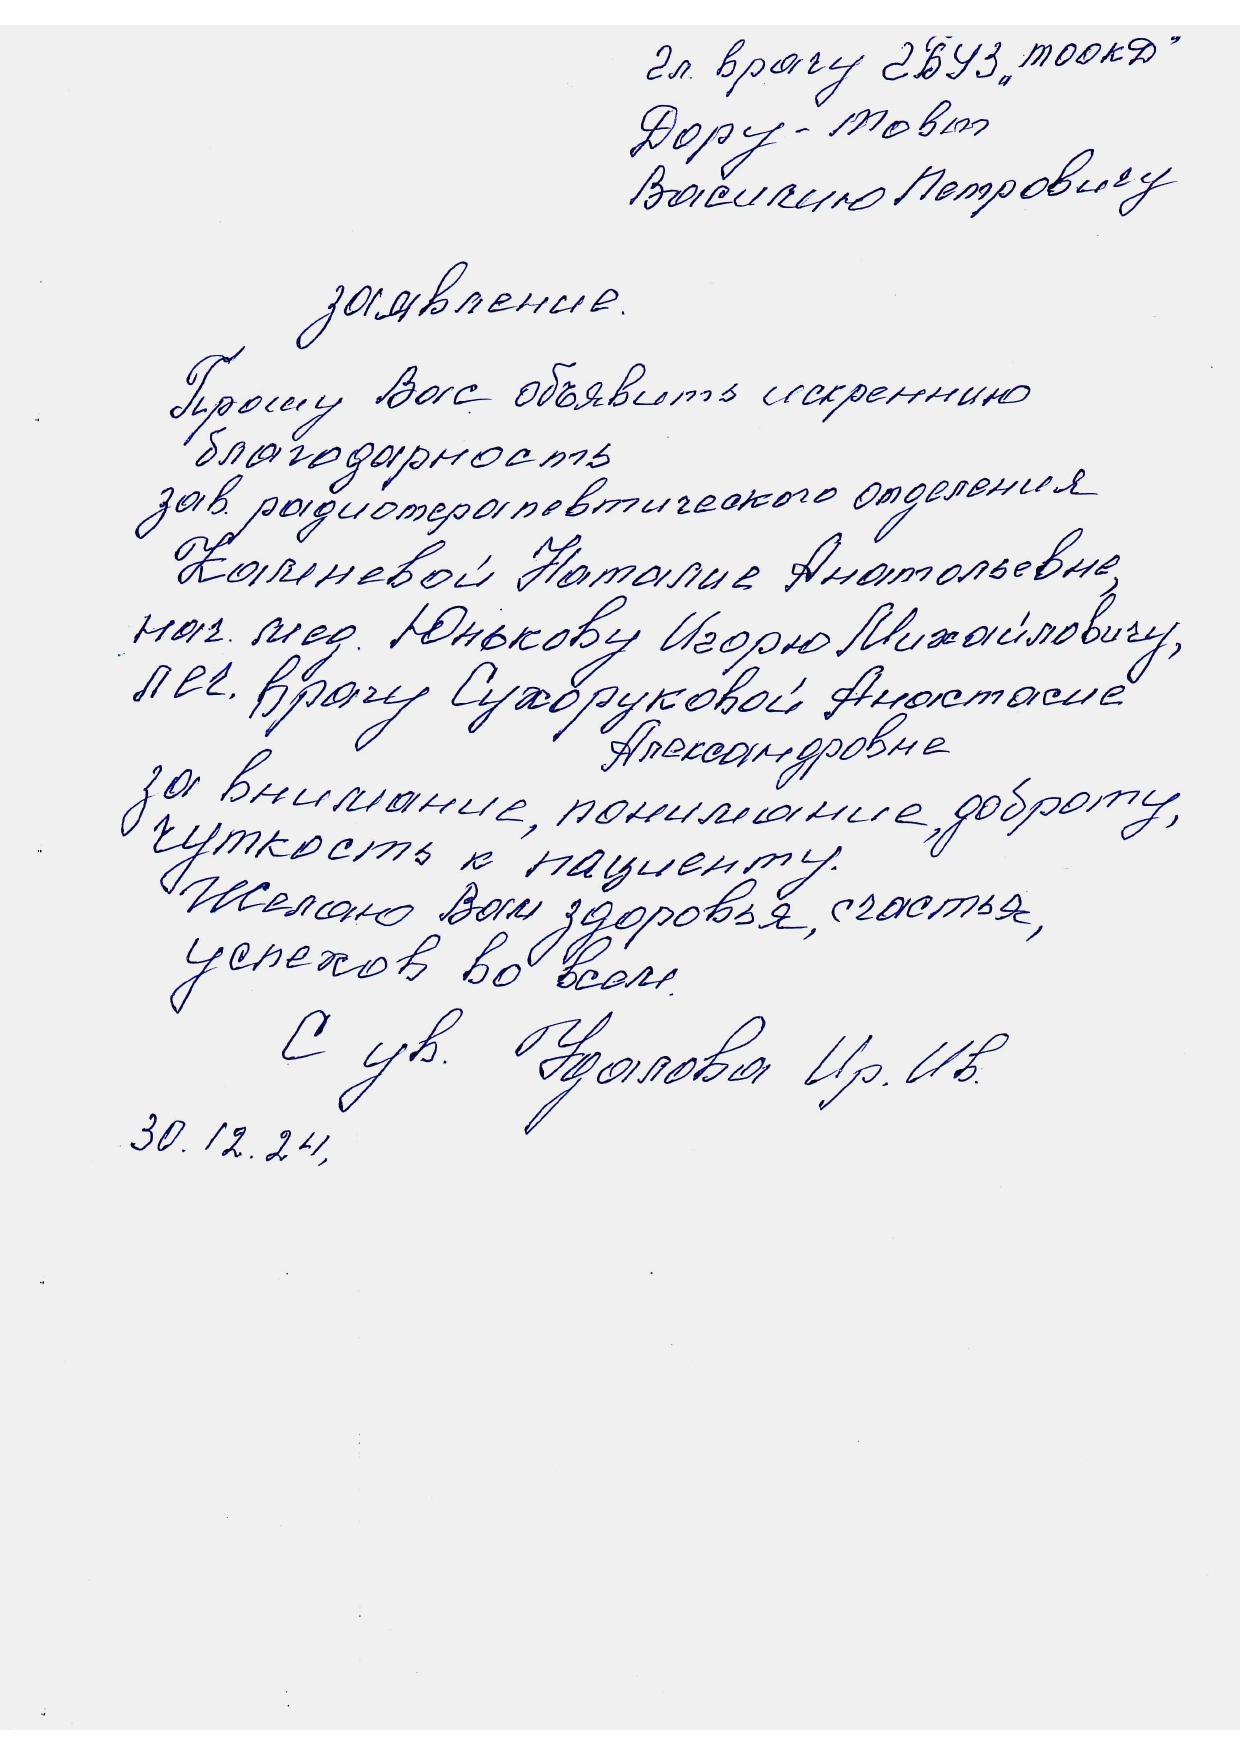 Гл. врачу ГБУЗ „ТООКД"
Дору-Товт
Василию Петровичу
заявление.
Прошу Вас объявить искреннию
благодарность
зав. радиотерапевтического отделения
Камневой Наталие Анатольевне,
нач. мед. Юнькову Игорю Михайловичу,
леч. врачу Сухоруковой Анастасие
Александровне
за внимание, понимание, доброту,
чуткость к пациенту.
Желаю Вам здоровья, счастья,
успехов во всем.
С ув. Удалова Ир. Ив.
30.12.24,